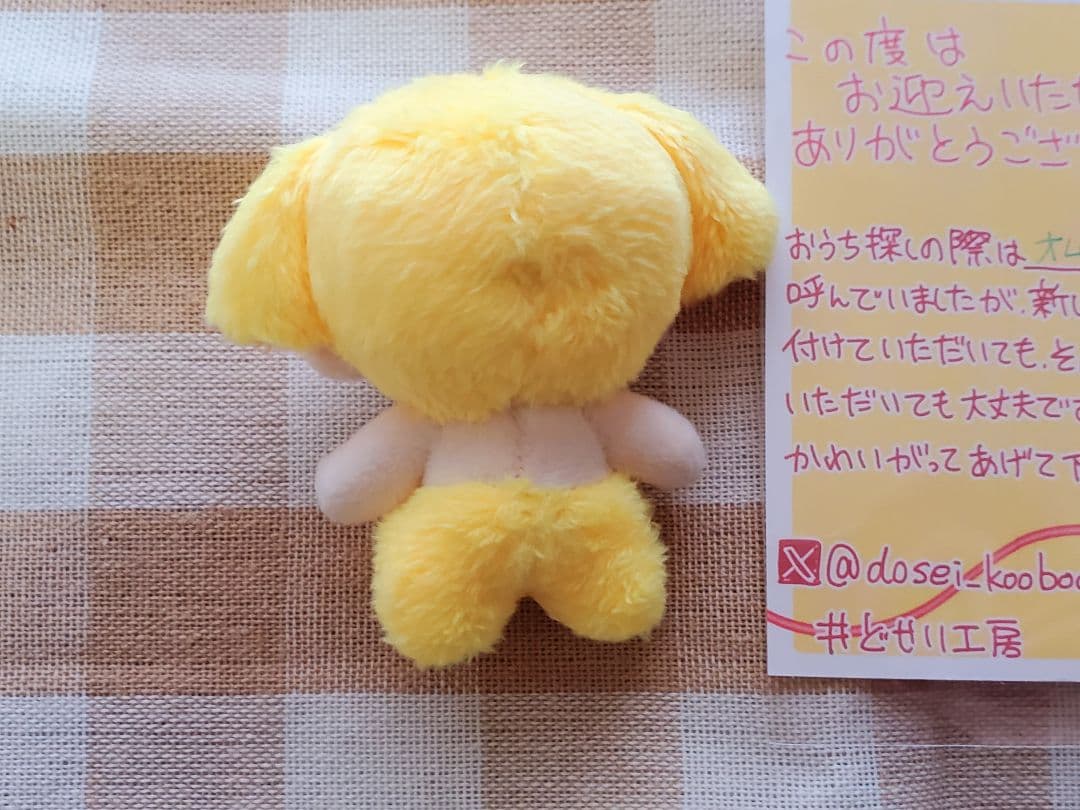 この度は
お迎えいただ
ありがとうござ
おうち探しの際はオレ
呼んでいましたが、新し
付けていただいても、そ
いただいても大丈夫です
かわいがってあげて下
@dosei_kooboo
#どせい工房